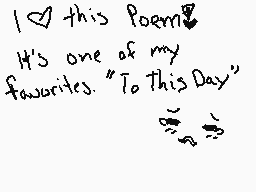 I ♡ this Poem!
It's one of my
favorites. "To This Day"